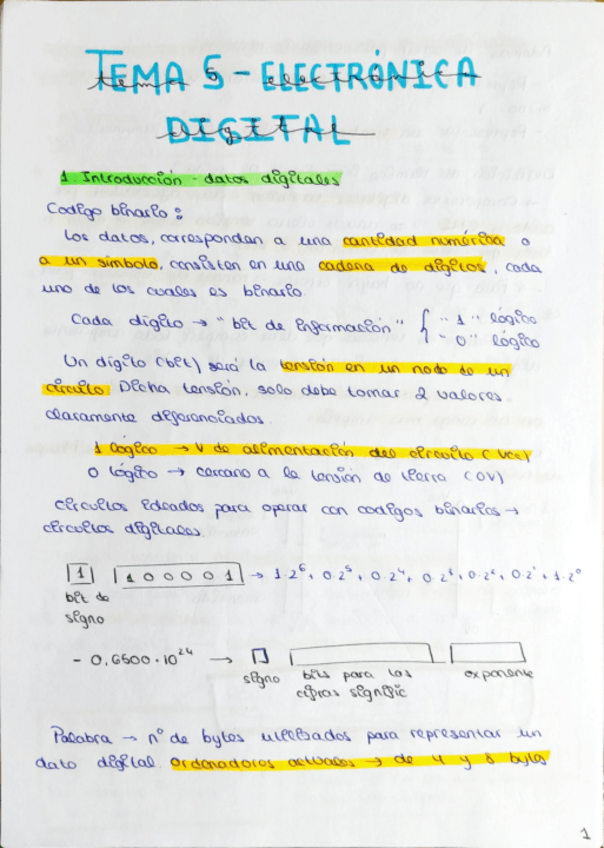 TEMA 5 - ELECTRÓNICA
tema electrónica
DIGITAL
digital
1. Introducción - datos digitales
Codigo binario:
Los datos, corresponden a una cantidad numérica o
a un símbolo, consisten en una cadena de dígitos, cada
uno de los cuales es binario.
Cada dígito → "bit de información" { "1" lógico
"0" lógico
Un dígito (bit) será la tensión en un nodo de un
circuito. Dicha tensión, solo debe tomar 2 valores
claramente diferenciados.
1 lógico → V de alimentación del circuito (Vcc)
0 lógico → cercano a la tensión de tierra (0V)
Circuitos ideados para operar con codigos binarios →
circuitos digitales
1 1 0 0 0 0 1 → 1·2⁶, 0·2⁵, 0·2⁴, 0·2³, 0·2², 0·2¹, 1·2⁰
bit de
signo
- 0,6500·10²⁴ →
signo bits para las exponente
cifras signific
Palabra → nº de bytes utilizados para representar un
dato digital. Ordenadores actuales → de 4 y 8 bytes
1